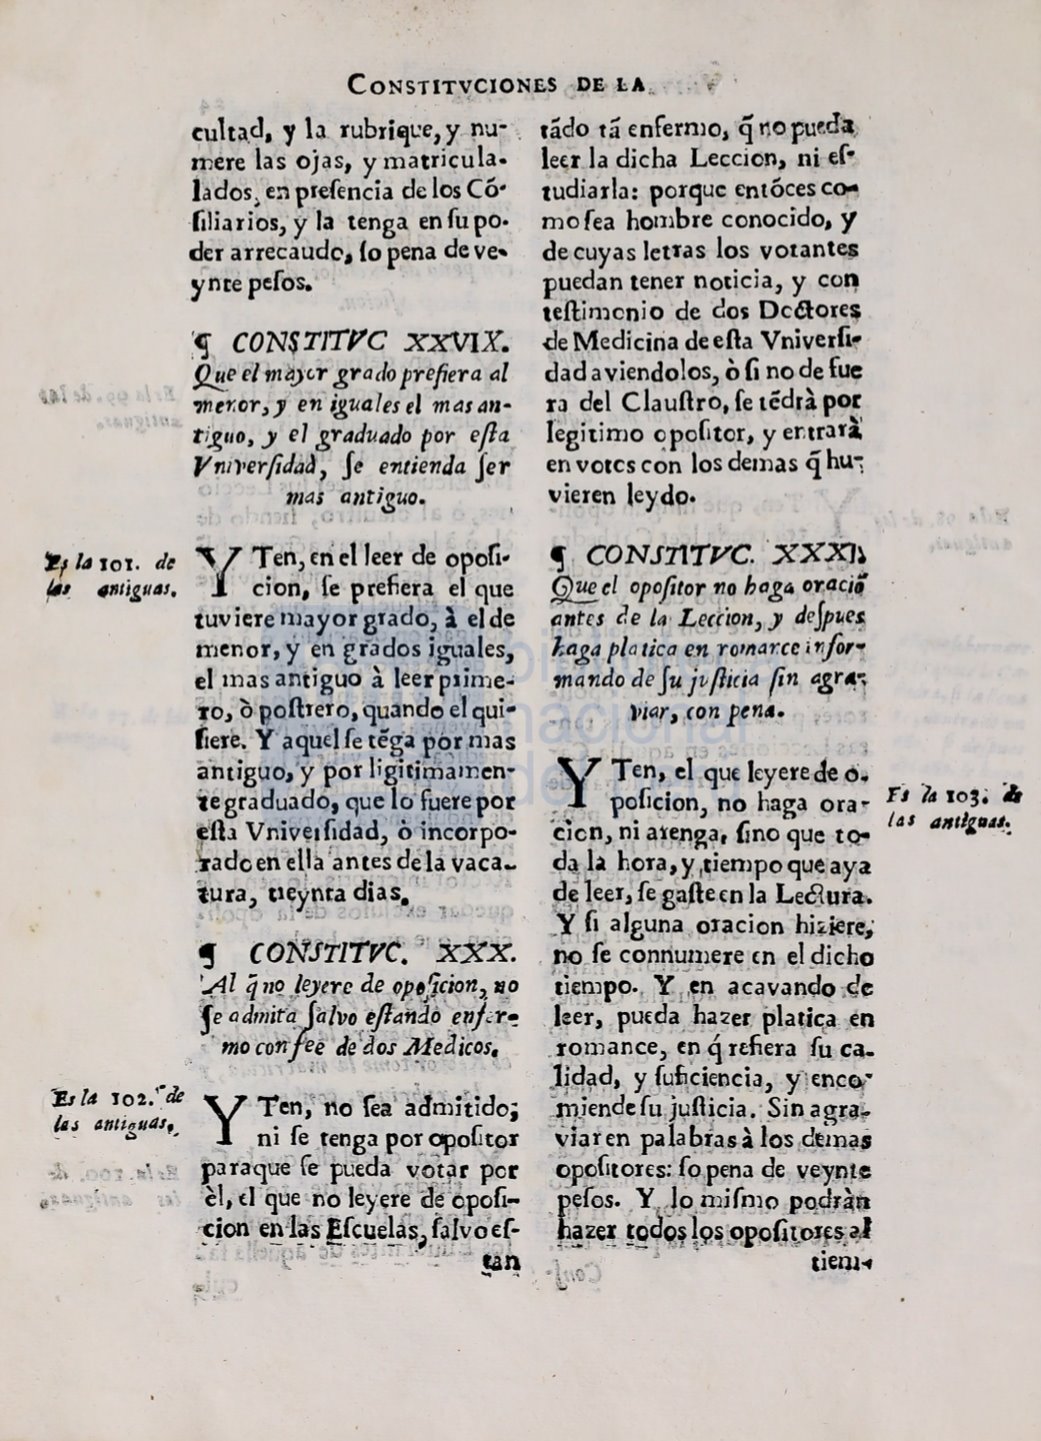 CONSTITVCIONES DE LA
cultad, y la rubrique, y nu-
mere las ojas, y matricula-
lados, en presencia de los Cõ-
siliarios, y la tenga en su po-
der arrecaudo, so pena de ve-
ynte pesos.
¶ CONSTITVC XXVIX.
Que el mayor grado prefiera al
menor, y en iguales el mas an-
tiguo, y el graduado por esta
Vniversidad, se entienda ser
mas antiguo.
Es la 101. de
las antiguas.
YTen, en el leer de oposi-
cion, se prefiera el que
tuviere mayor grado, à el de
menor, y en grados iguales,
el mas antiguo à leer prime-
ro, ò postrero, quando el qui-
siere. Y aquel se tẽga por mas
antiguo, y por ligitimamen-
te graduado, que lo fuere por
esta Vniversidad, ò incorpo-
rado en ella antes de la vaca-
tura, treynta dias.
¶ CONSTITVC. XXX.
Al q̃ no leyere de oposicion, no
se admita salvo estando enfer-
mo con fee de dos Medicos.
Es la 102. de
las antiguas.
YTen, no sea admitido;
ni se tenga por opositor
paraque se pueda votar por
èl, el que no leyere de oposi-
cion en las Escuelas, salvo es-
tan
tãdo tã enfermo, q̃ no pueda
leer la dicha Leccion, ni es-
tudiarla: porque entõces co-
mo sea hombre conocido, y
de cuyas letras los votantes
puedan tener noticia, y con
testimonio de dos Doctores
de Medicina de esta Vniversi-
dad aviendolos, ò si no de fue
ra del Claustro, se tẽdrà por
legitimo opositor, y entrarà
en votos con los demas q̃ hu-
vieren leydo.
¶ CONSTITVC. XXXI.
Que el opositor no haga oraciõ
antes de la Leccion, y despues
haga platica en romance infor-
mando de su justicia sin agra-
viar, con pena.
YTen, el que leyere de o-
posicion, no haga ora-
cion, ni arenga, sino que to-
da la hora, y tiempo que aya
de leer, se gaste en la Lectura.
Y si alguna oracion hiziere,
no se connumere en el dicho
tiempo. Y en acavando de
leer, pueda hazer platica en
romance, en q́ refiera su ca-
lidad, y suficiencia, y enco-
miende su justicia. Sin agra-
viar en palabras à los demas
opositores: so pena de veynte
pesos. Y lo mismo podràn
hazer todos los opositores al
tiem-
Es la 103. de
las antiguas.